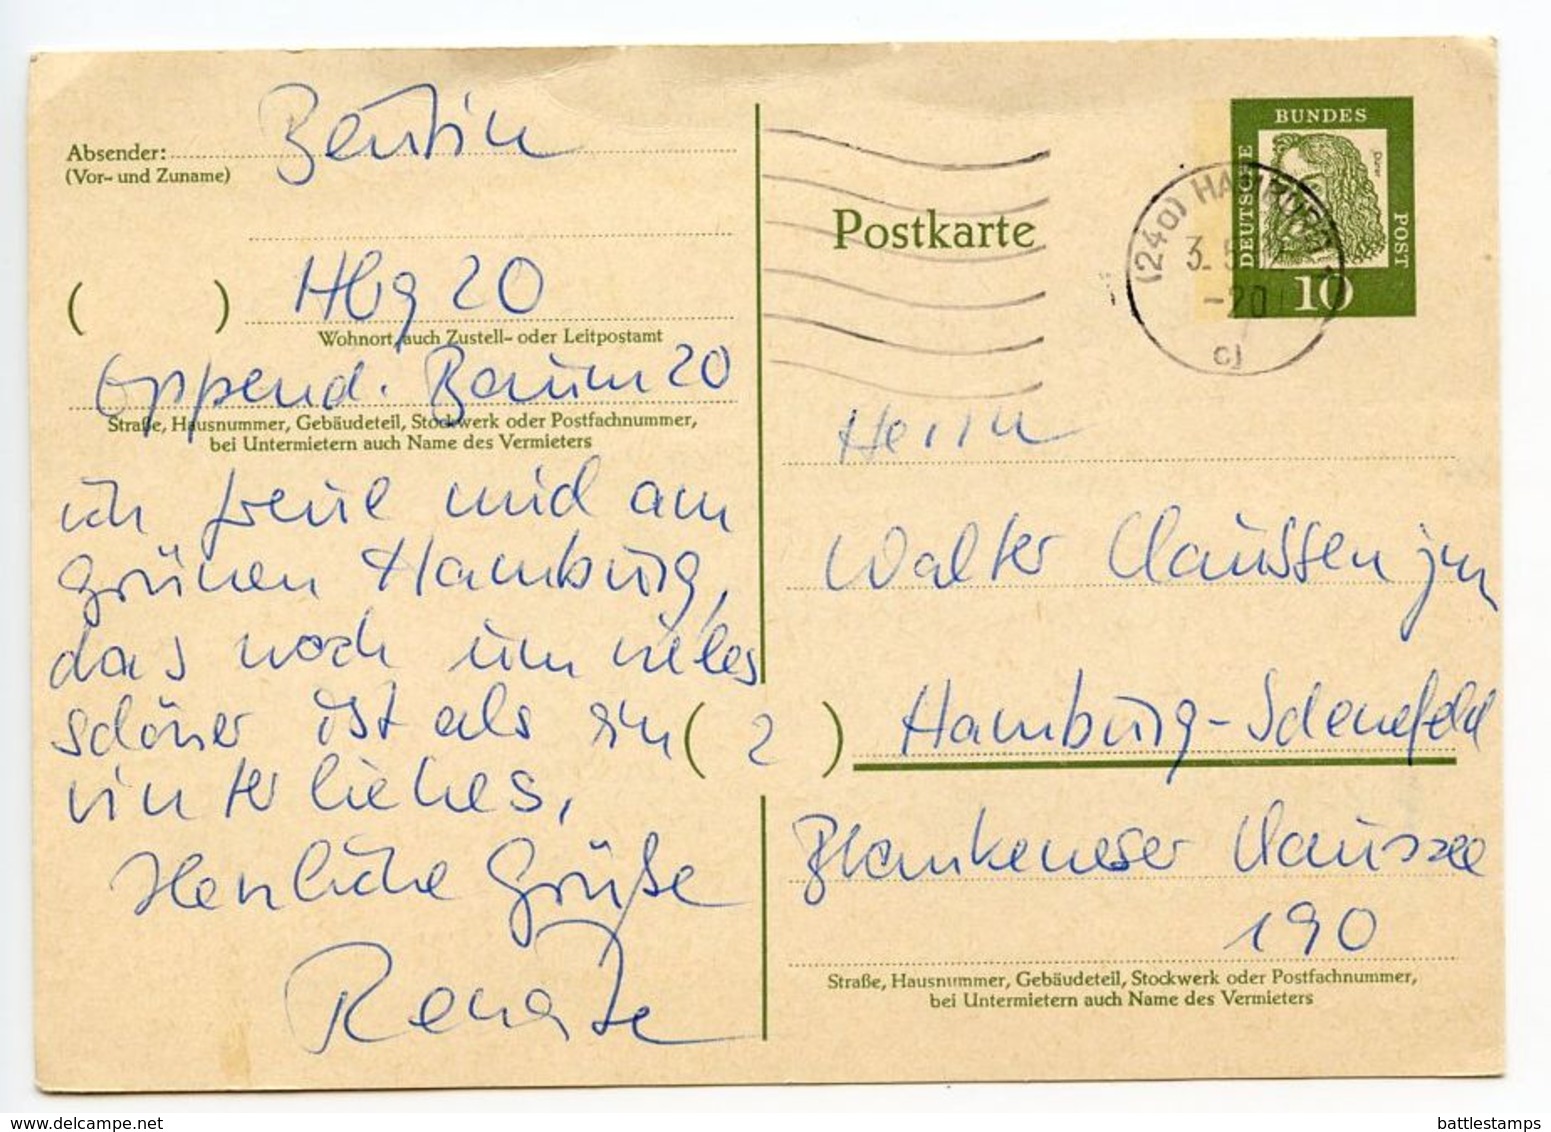 Absender:
Bentin
(Vor- und Zuname)
( ) Hbg 20
Wohnort, auch Zustell- oder Leitpostamt
Oppend. Baum 20
Straße, Hausnummer, Gebäudeteil, Stockwerk oder Postfachnummer,
bei Untermietern auch Name des Vermieters
ich freue mich am
grünen Hamburg,
das noch um vieles
schöner ist als ein
winterliches,
Herzliche Grüße
Renate
Postkarte
DEUTSCHE
BUNDES
POST
Dürer
10
(24a) HAMBURG 1
3. 5.
-20
cj
Herrn
Walter Claussen jun
( 2 ) Hamburg-Schenefeld
Blankeneser Chaussee
190
Straße, Hausnummer, Gebäudeteil, Stockwerk oder Postfachnummer,
bei Untermietern auch Name des Vermieters
www.delcampe.net
battlestamps